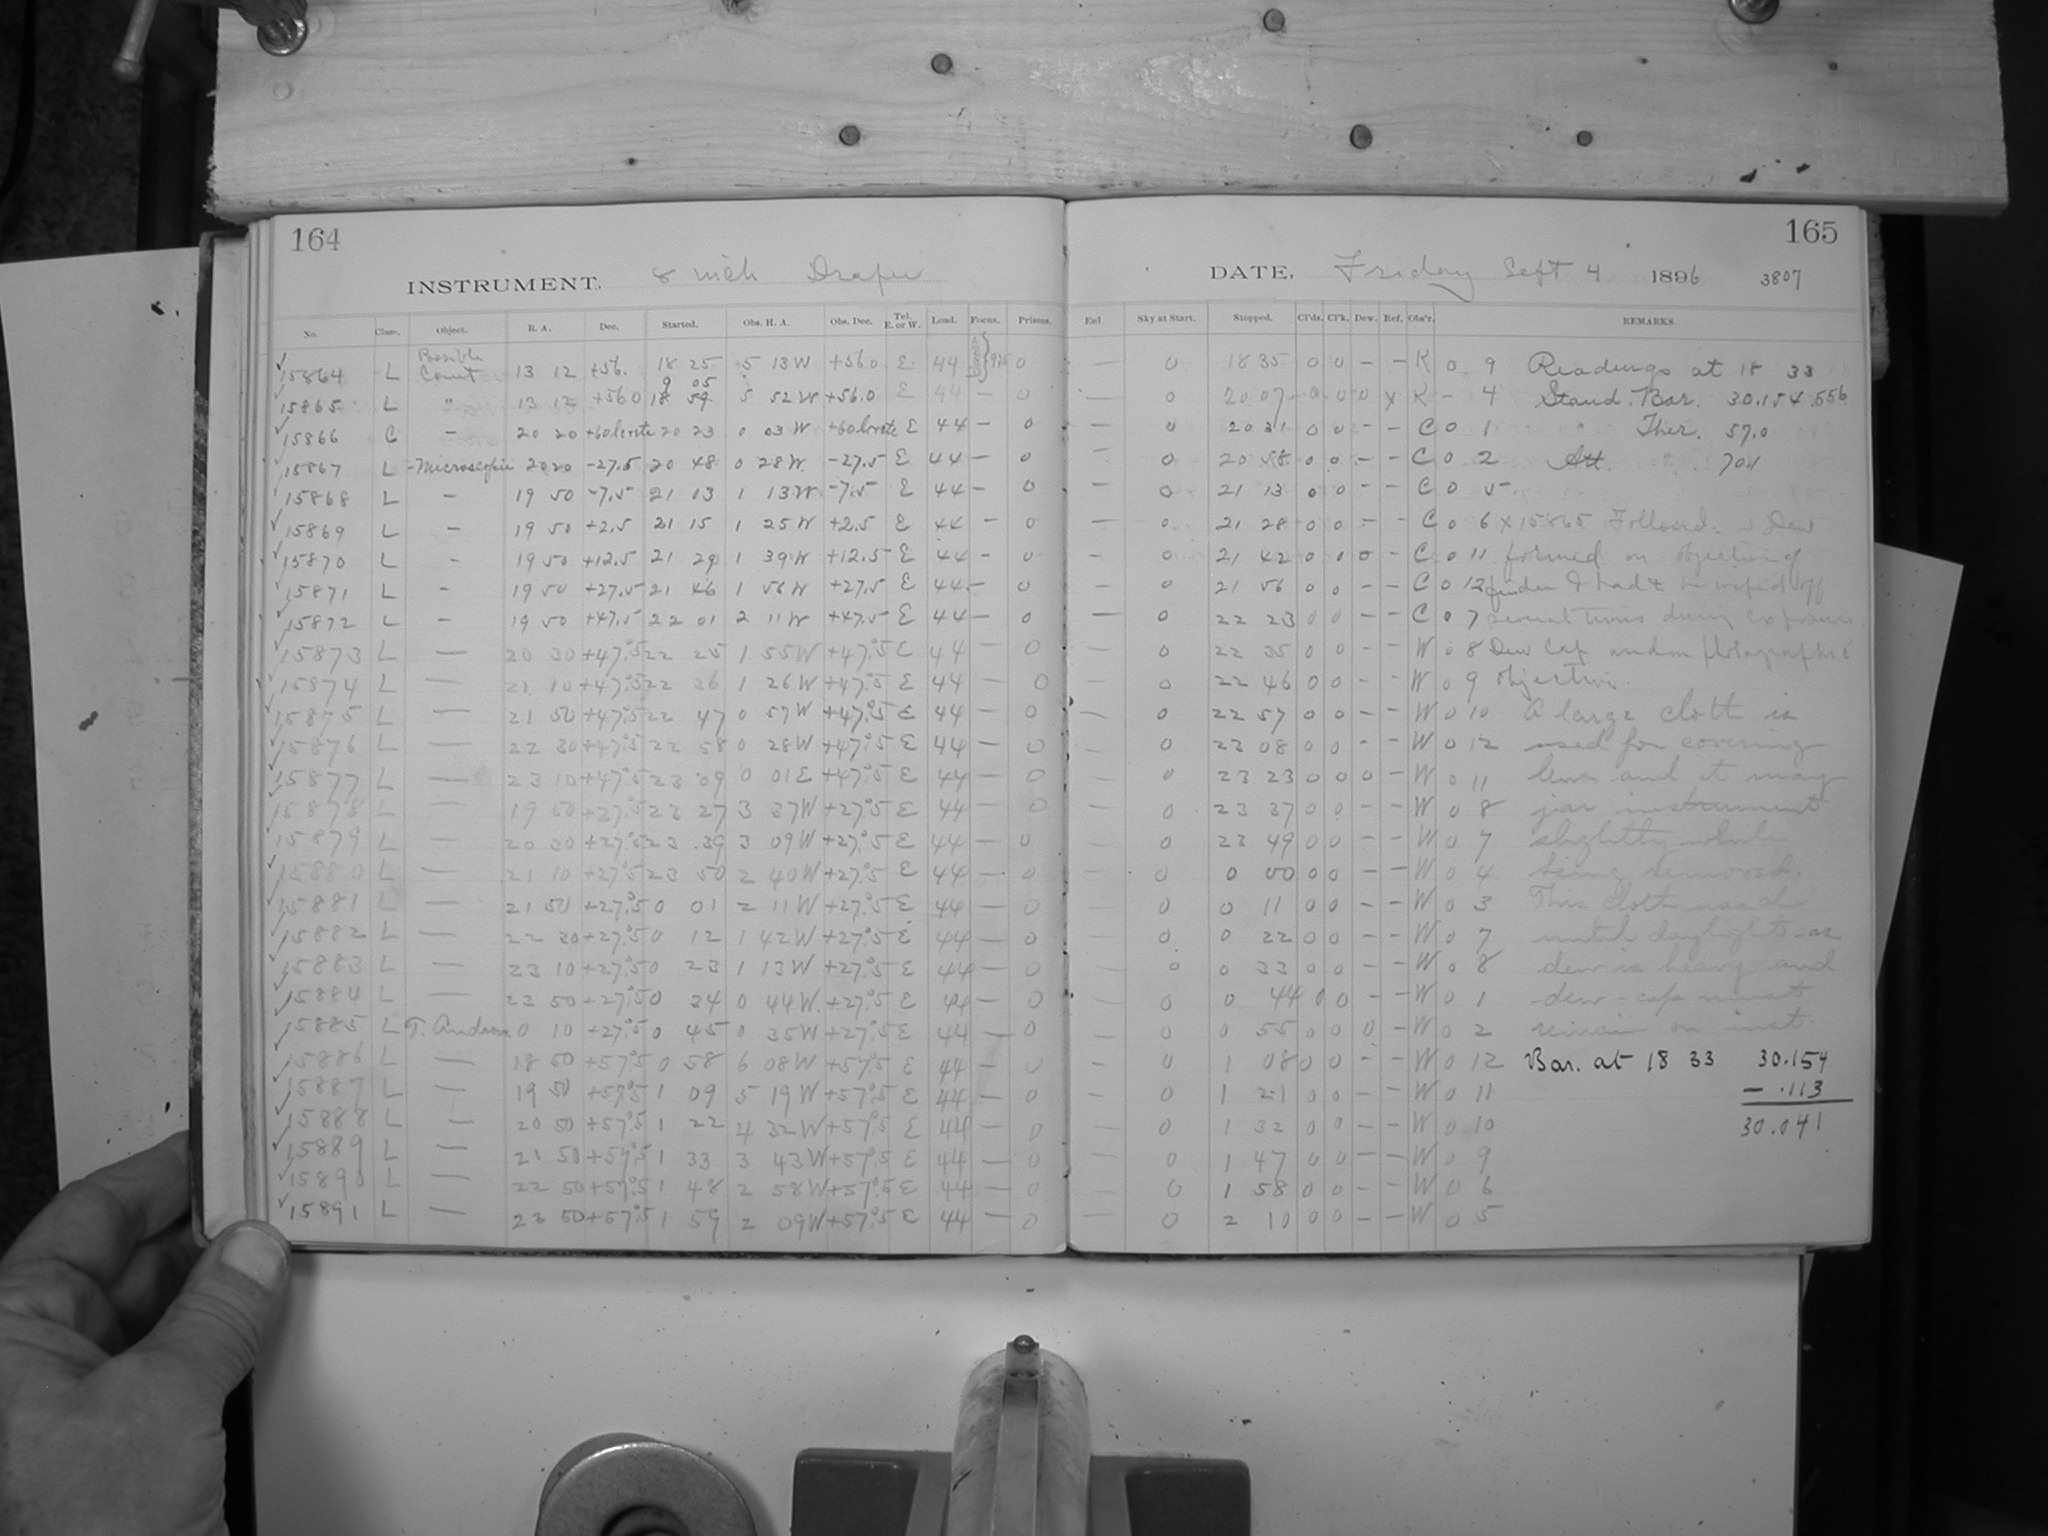 164
INSTRUMENT. 8 inch Draper
No. Class. Object. R. A. Dec. Started. Obs. H. A. Obs. Dec. Tel. E. or W. Load. Focus. Prisms.
15864 L Possible Comet 13 12 +56. 18 25 5 13 W +56.0 E 44 925 0
15865 L " 13 12 +56 0 5 52 W +56.0 E 44 - 0
15866 C - 20 20 20 23 0 03 W E 44 - 0
15867 L - Microscopii 2020 -27.5 20 48 0 28 W -27.5 E 44 - 0
15868 L - 19 50 -7.5 21 13 1 13 W -7.5 E 44 - 0
15869 L - 19 50 +2.5 21 15 1 25 W +2.5 E 44 - 0
15870 L - 19 50 +12.5 21 29 1 39 W +12.5 E 44 - 0
15871 L - 19 50 +27.5 21 46 1 56 W +27.5 E 44 - 0
15872 L - 19 50 +47.5 22 01 2 11 W +47.5 E 44 - 0
15873 L — 20 30 +47.°5 22 25 1 55 W +47.°5 E 44 — 0
15874 L — 21 10 +47.°5 22 36 1 26 W +47.°5 E 44 — 0
15875 L — 21 50 +47.°5 22 47 0 57 W +47.°5 E 44 — 0
15876 L — 22 30 +47.°5 22 58 0 28 W +47.°5 E 44 — 0
15877 L — 23 10 +47.°5 23 09 0 01 E +47.°5 E 44 — 0
15878 L — 19 50 +27.°5 23 27 3 37 W +27.°5 E 44 — 0
15879 L — 20 30 +27.°5 23 39 3 09 W +27.°5 E 44 — 0
15880 L — 21 10 +27.°5 23 50 2 40 W +27.°5 E 44 — 0
15881 L — 21 50 +27.°5 0 01 2 11 W +27.°5 E 44 — 0
15882 L — 22 30 +27.°5 0 12 1 42 W +27.°5 E 44 — 0
15883 L — 23 10 +27.°5 0 23 1 13 W +27.°5 E 44 — 0
15884 L — 23 50 +27.°5 0 34 0 44 W +27.°5 E 44 — 0
15885 L T. Androm 0 10 +27.°5 0 45 0 35 W +27.°5 E 44 — 0
15886 L — 18 50 +57.°5 0 58 6 08 W +57.°5 E 44 — 0
15887 L — 19 50 +57.°5 1 09 5 19 W +57.°5 E 44 — 0
15888 L — 20 50 +57.°5 1 22 4 32 W +57.°5 E 44 — 0
15889 L — 21 50 +57.°5 1 33 3 43 W +57.°5 E 44 — 0
15890 L — 22 50 +57.°5 1 48 2 58 W +57.°5 E 44 — 0
15891 L — 23 50 +57.°5 1 59 2 09 W +57.°5 E 44 — 0
165
DATE. Friday Sept 4 1896 3807
Enl Sky at Start. Stopped. Cl'ds. Cl'k. Dew. Ref. Obs'r. REMARKS.
— 0 18 35 0 0 - - K 0 9 Readings at 18 33
— 0 20 07 - 0 0 0 x K - 4 Stand. Bar. 30.154
— 0 20 31 0 0 - - C 0 1 " Ther. 57.0
— 0 20 58 0 0 - - C 0 2 Att. " 70.1
— 0 21 13 0 0 - - C 0 5
— 0 21 28 0 0 - - C 0 6 x 15865 Followed. Dew
— 0 21 42 0 0 0 - C 0 11 formed on objective of
— 0 21 56 0 0 - - C 0 12 finder & had to be wiped off
— 0 22 23 0 0 - - C 0 7 several times during exposure
— 0 22 35 0 0 - - W 0 8 Dew Cap used on photographic
— 0 22 46 0 0 - - W 0 9 objective.
— 0 22 57 0 0 - - W 0 10 A large cloth is
— 0 23 08 0 0 - - W 0 12 used for covering
— 0 23 23 0 0 0 - W 0 11 lens and it may
— 0 23 37 0 0 - - W 0 8 jar instrument
— 0 23 49 0 0 - - W 0 7 slightly while
— 0 0 00 0 0 - - W 0 4 being removed.
— 0 0 11 0 0 - - W 0 3 This cloth used
— 0 0 22 0 0 - - W 0 7 until daylight as
— 0 0 33 0 0 - - W 0 8 dew is heavy and
— 0 0 44 0 0 - - W 0 1 dew-cap must
— 0 0 55 0 0 0 - W 0 2 remain on inst.
— 0 1 08 0 0 - - W 0 12 Bar. at 18 33 30.154
— 0 1 21 0 0 - - W 0 11 - .113
— 0 1 32 0 0 - - W 0 10 30.041
— 0 1 47 0 0 - - W 0 9
— 0 1 58 0 0 - - W 0 6
— 0 2 10 0 0 - - W 0 5